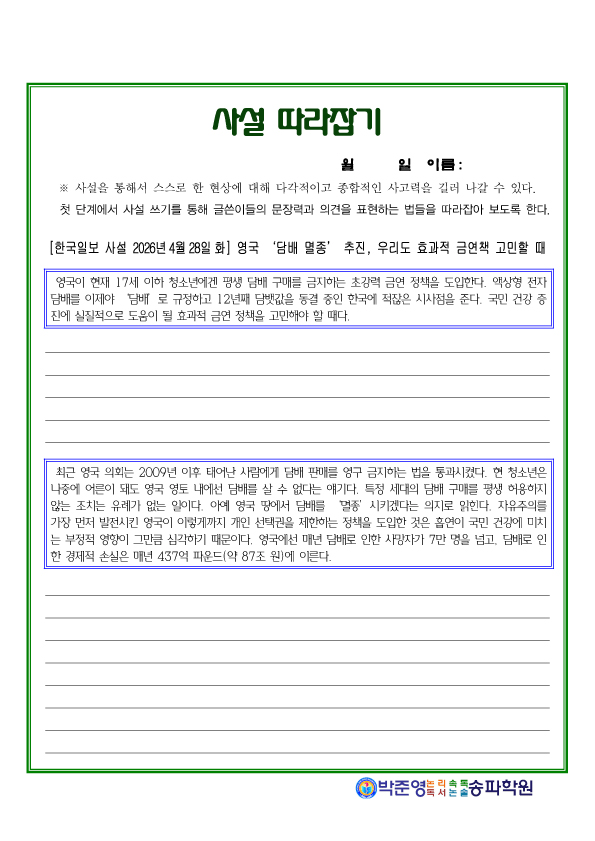 사설 따라잡기
월 일 이름 :
※ 사설을 통해서 스스로 한 현상에 대해 다각적이고 종합적인 사고력을 길러 나갈 수 있다.
첫 단계에서 사설 쓰기를 통해 글쓴이들의 문장력과 의견을 표현하는 법들을 따라잡아 보도록 한다.
[한국일보 사설 2026년 4월 28일 화] 영국 ‘담배 멸종’ 추진, 우리도 효과적 금연책 고민할 때
영국이 현재 17세 이하 청소년에겐 평생 담배 구매를 금지하는 초강력 금연 정책을 도입한다. 액상형 전자
담배를 이제야 ‘담배’로 규정하고 12년째 담뱃값을 동결 중인 한국에 적잖은 시사점을 준다. 국민 건강 증
진에 실질적으로 도움이 될 효과적 금연 정책을 고민해야 할 때다.
최근 영국 의회는 2009년 이후 태어난 사람에게 담배 판매를 영구 금지하는 법을 통과시켰다. 현 청소년은
나중에 어른이 돼도 영국 영토 내에선 담배를 살 수 없다는 얘기다. 특정 세대의 담배 구매를 평생 허용하지
않는 조치는 유례가 없는 일이다. 아예 영국 땅에서 담배를 ‘멸종’시키겠다는 의지로 읽힌다. 자유주의를
가장 먼저 발전시킨 영국이 이렇게까지 개인 선택권을 제한하는 정책을 도입한 것은 흡연이 국민 건강에 미치
는 부정적 영향이 그만큼 심각하기 때문이다. 영국에선 매년 담배로 인한 사망자가 7만 명을 넘고, 담배로 인
한 경제적 손실은 매년 437억 파운드(약 87조 원)에 이른다.
박준영 논리속독 독서논술 송파학원